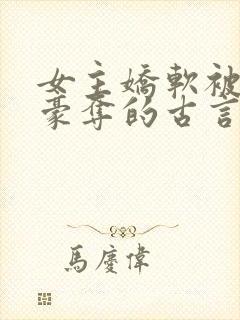 女主嬌軟被
豪奪的古言
馬慶偉